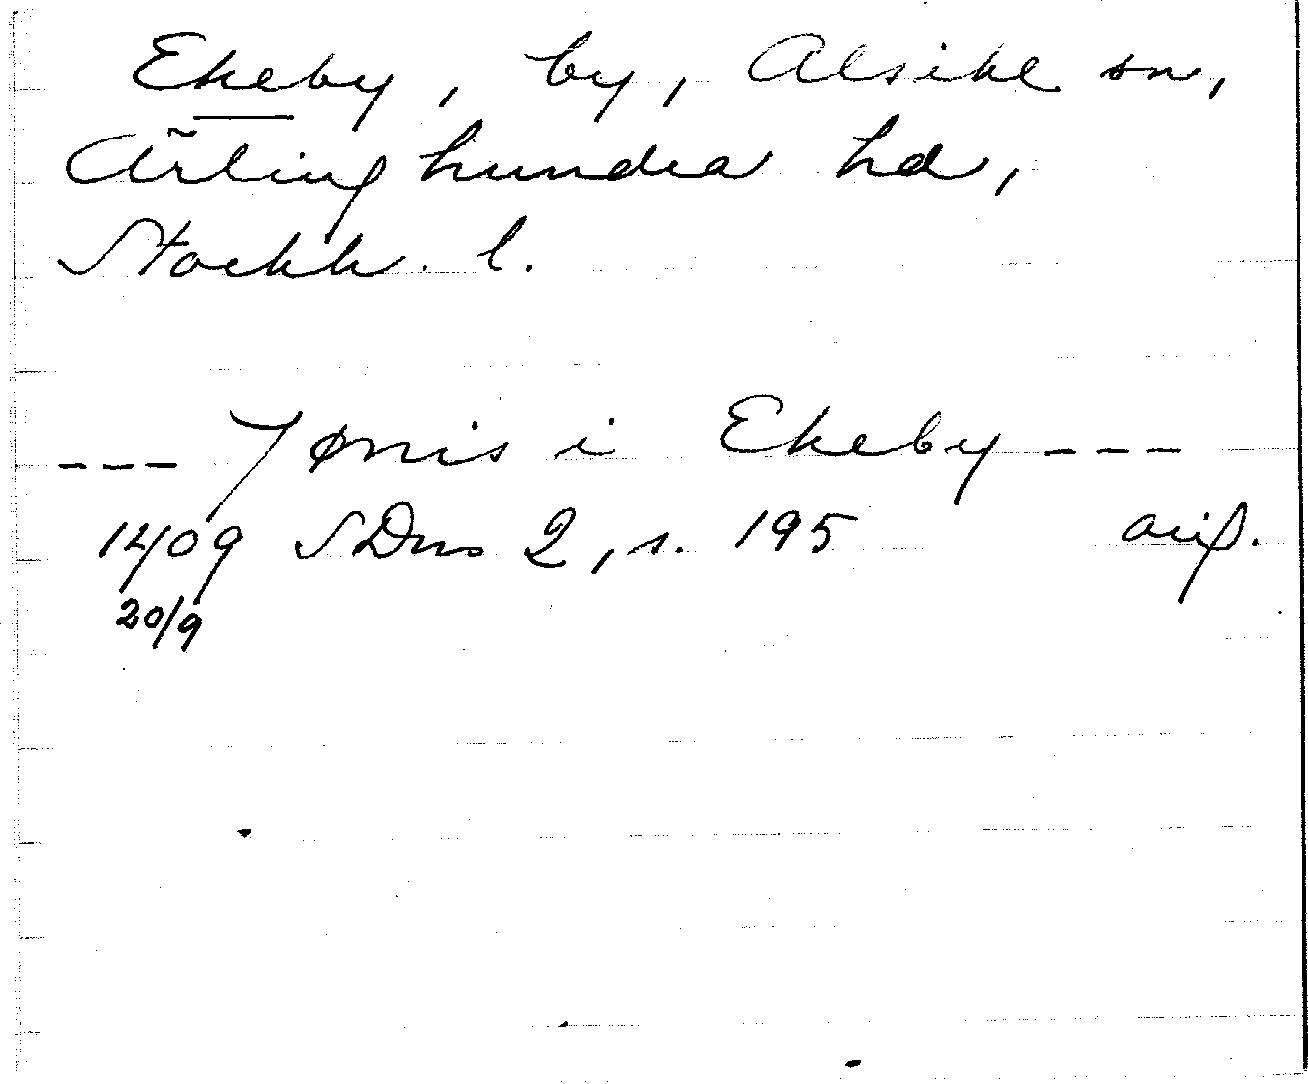 Ekeby, by, Alsike sn,
Ärlinghundra hd,
Stockh. l.
--- Jønis i Ekeby ---
1409 SDns 2, s. 195 orig.
20/9